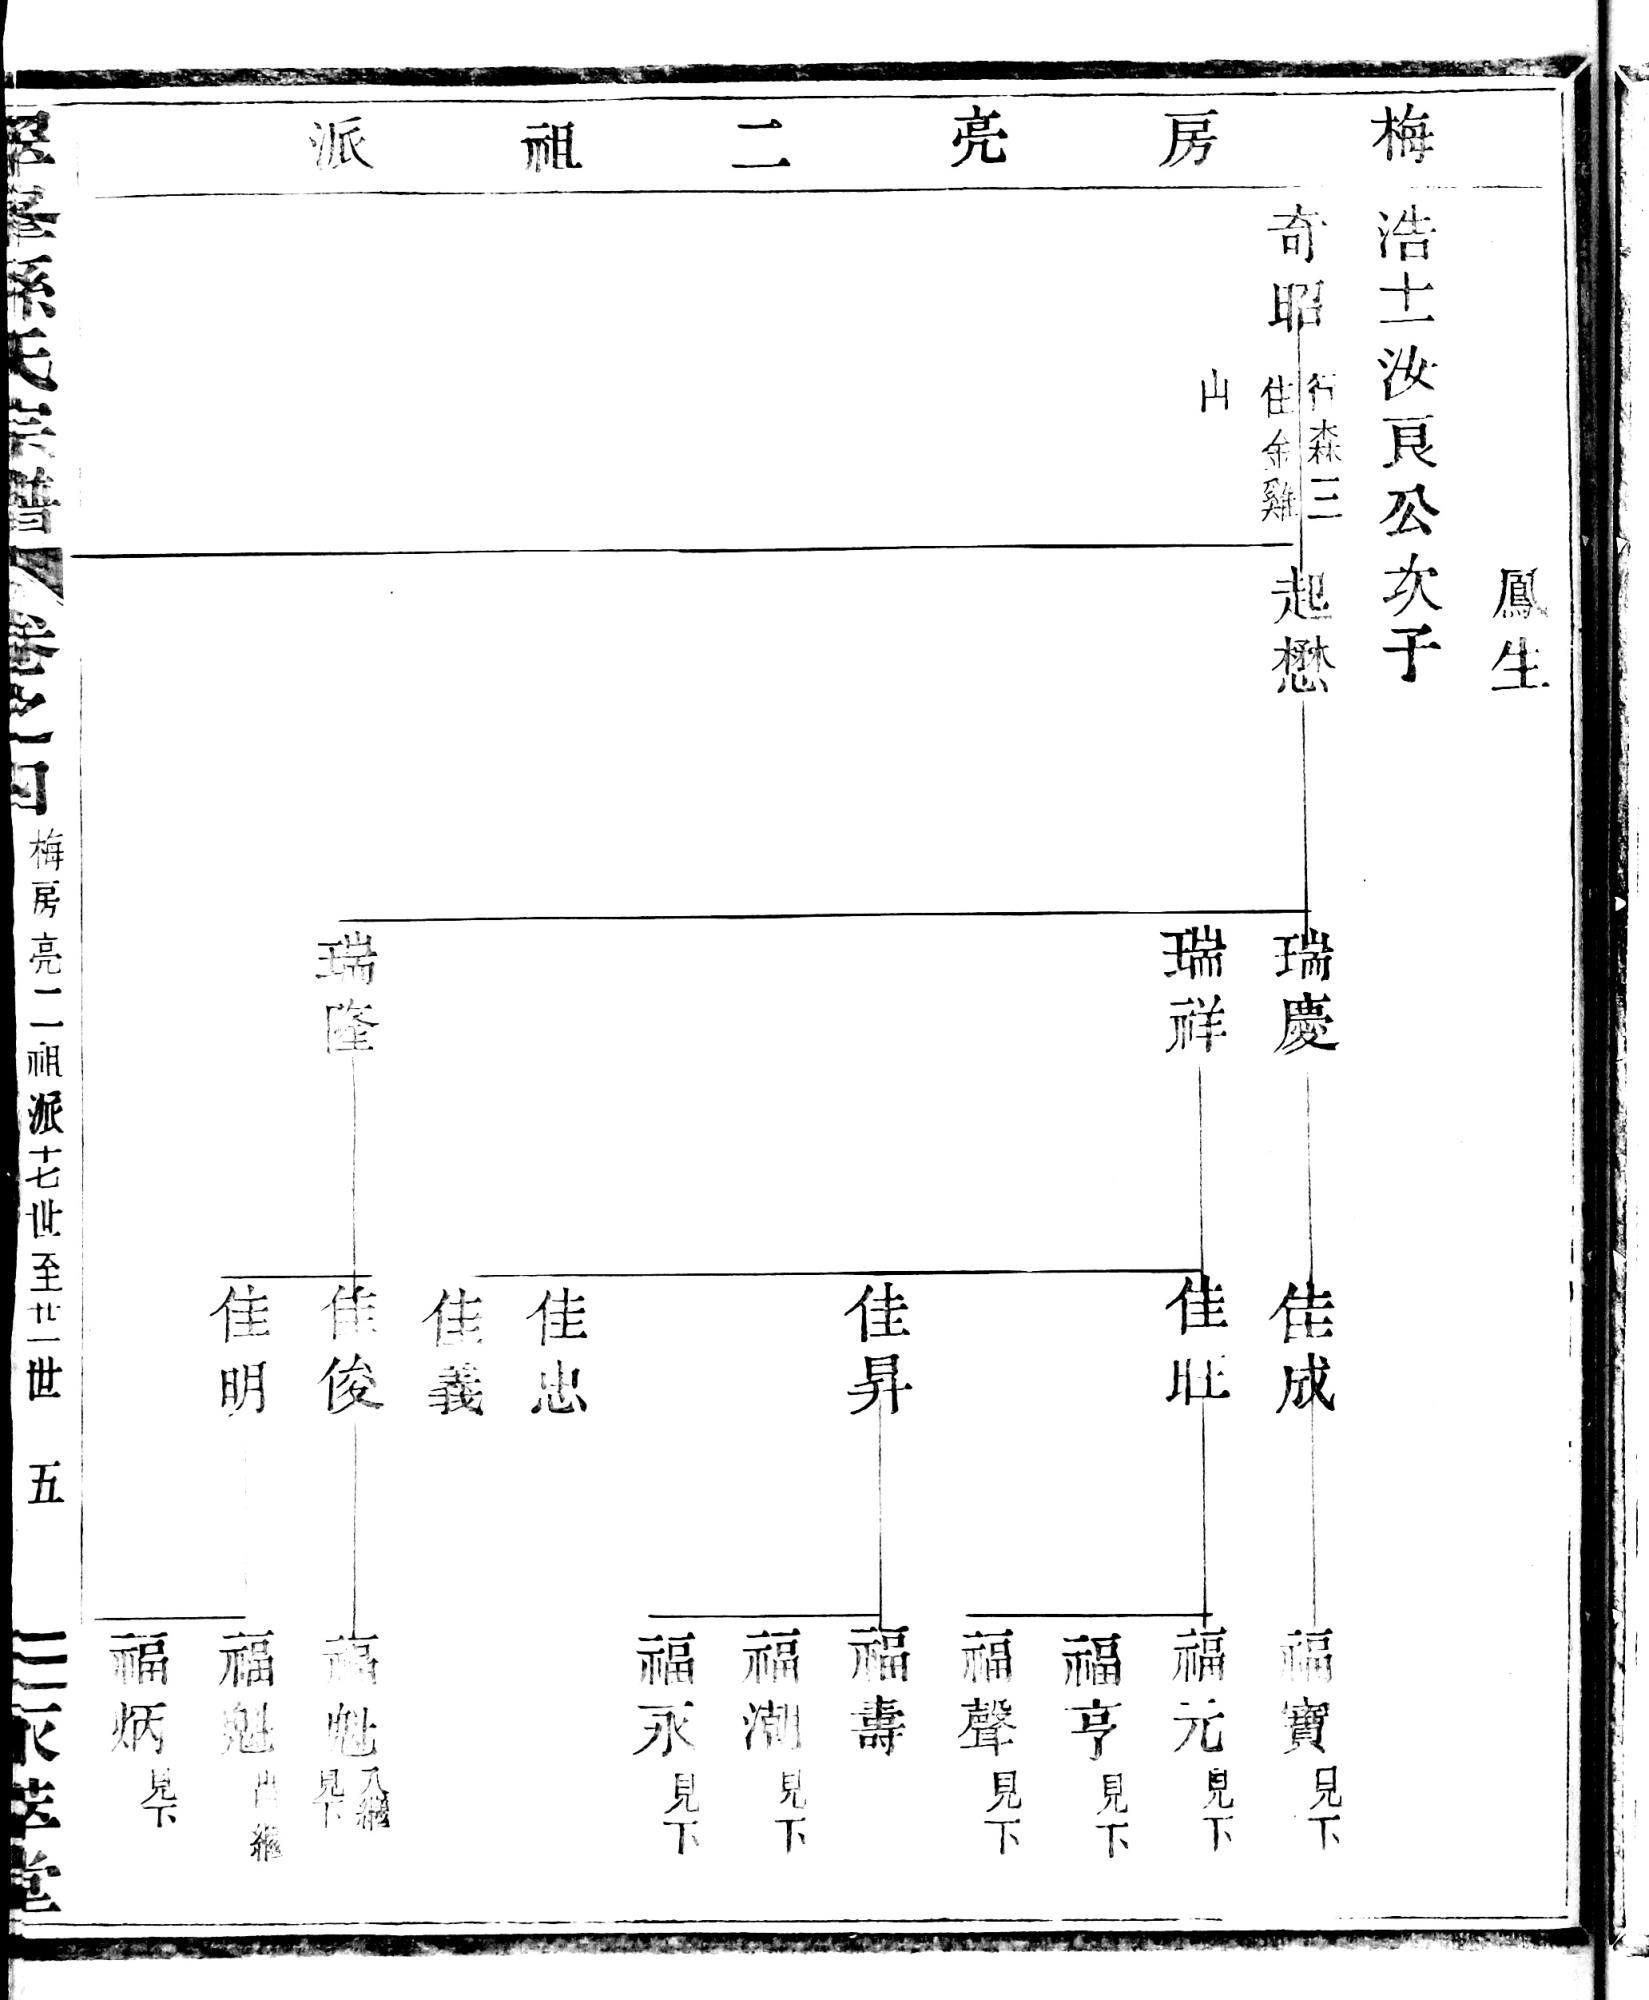 梅房亮二祖派
鳳生
浩十一汝良公次子
奇昭
行森三
住金雞
山
起懋
瑞慶
瑞祥
瑞隆
佳成
佳壯
佳昇
佳忠
佳義
佳俊
佳明
福寶 見下
福元 見下
福亨 見下
福聲 見下
福壽
福潮 見下
福永 見下
福魁 入繼 見下
福魁 出繼
福炳 見下
孫氏宗譜 卷之四 梅房亮二祖派十七世至廿一世 五 萃堂